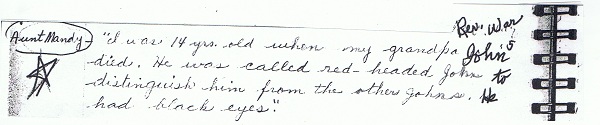 Aunt Mandy - "I was 14 yrs. old when my grandpa Rev. War John⁵
died. He was called red-headed John to
distinguish him from the other Johns. He
had black eyes."